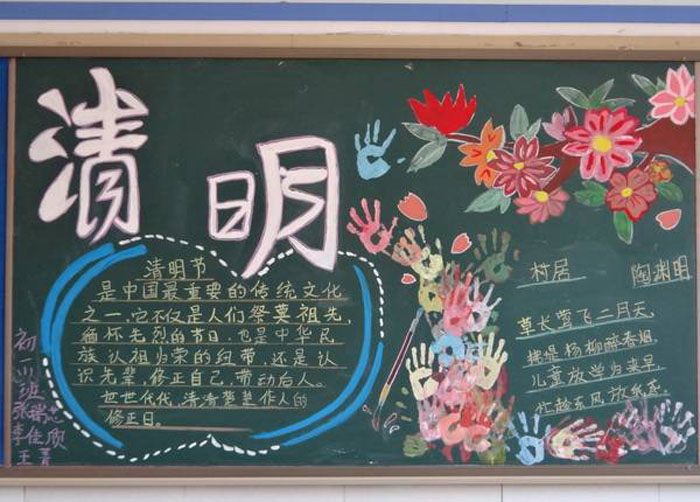 清明
清明节
是中国最重要的传统文化
之一,它不仅是人们祭奠祖先,
缅怀先烈的节日,也是中华民
族认祖归荣的纽带,还是认
识先辈,修正自己,带动后人。
世世代代,清清楚楚作人的
修正日。
村居 陶渊明
草长莺飞二月天,
堤杨柳醉春烟,
儿童放学归来早,
忙趁东风放纸鸢。
初一
班
张
李佳欣
王